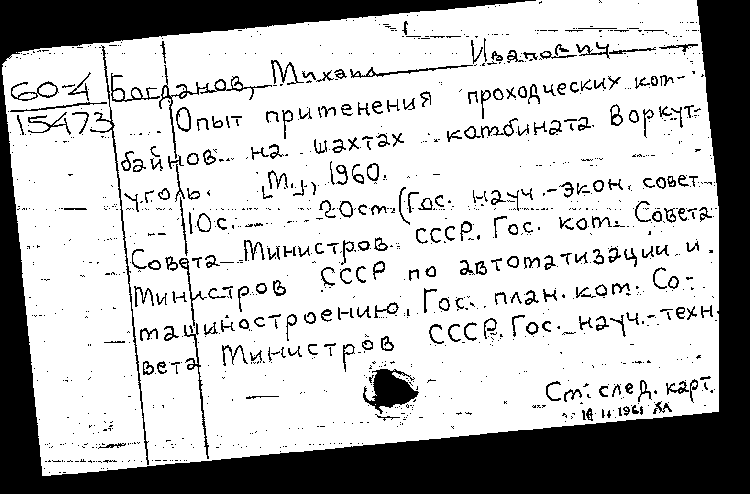 60-4 Богданов, Михаил Иванович
15473 Опыт применения проходческих ком-
байнов на шахтах комбината Воркут-
уголь. [М.], 1960.
10с. 20см. (Гос. науч.-экон. совет
Совета Министров СССР. Гос. ком. Совета
Министров СССР по автоматизации и
машиностроению, Гос. план. ком. Со-
вета Министров СССР. Гос. науч.-техн.
См. след. карт.
1961